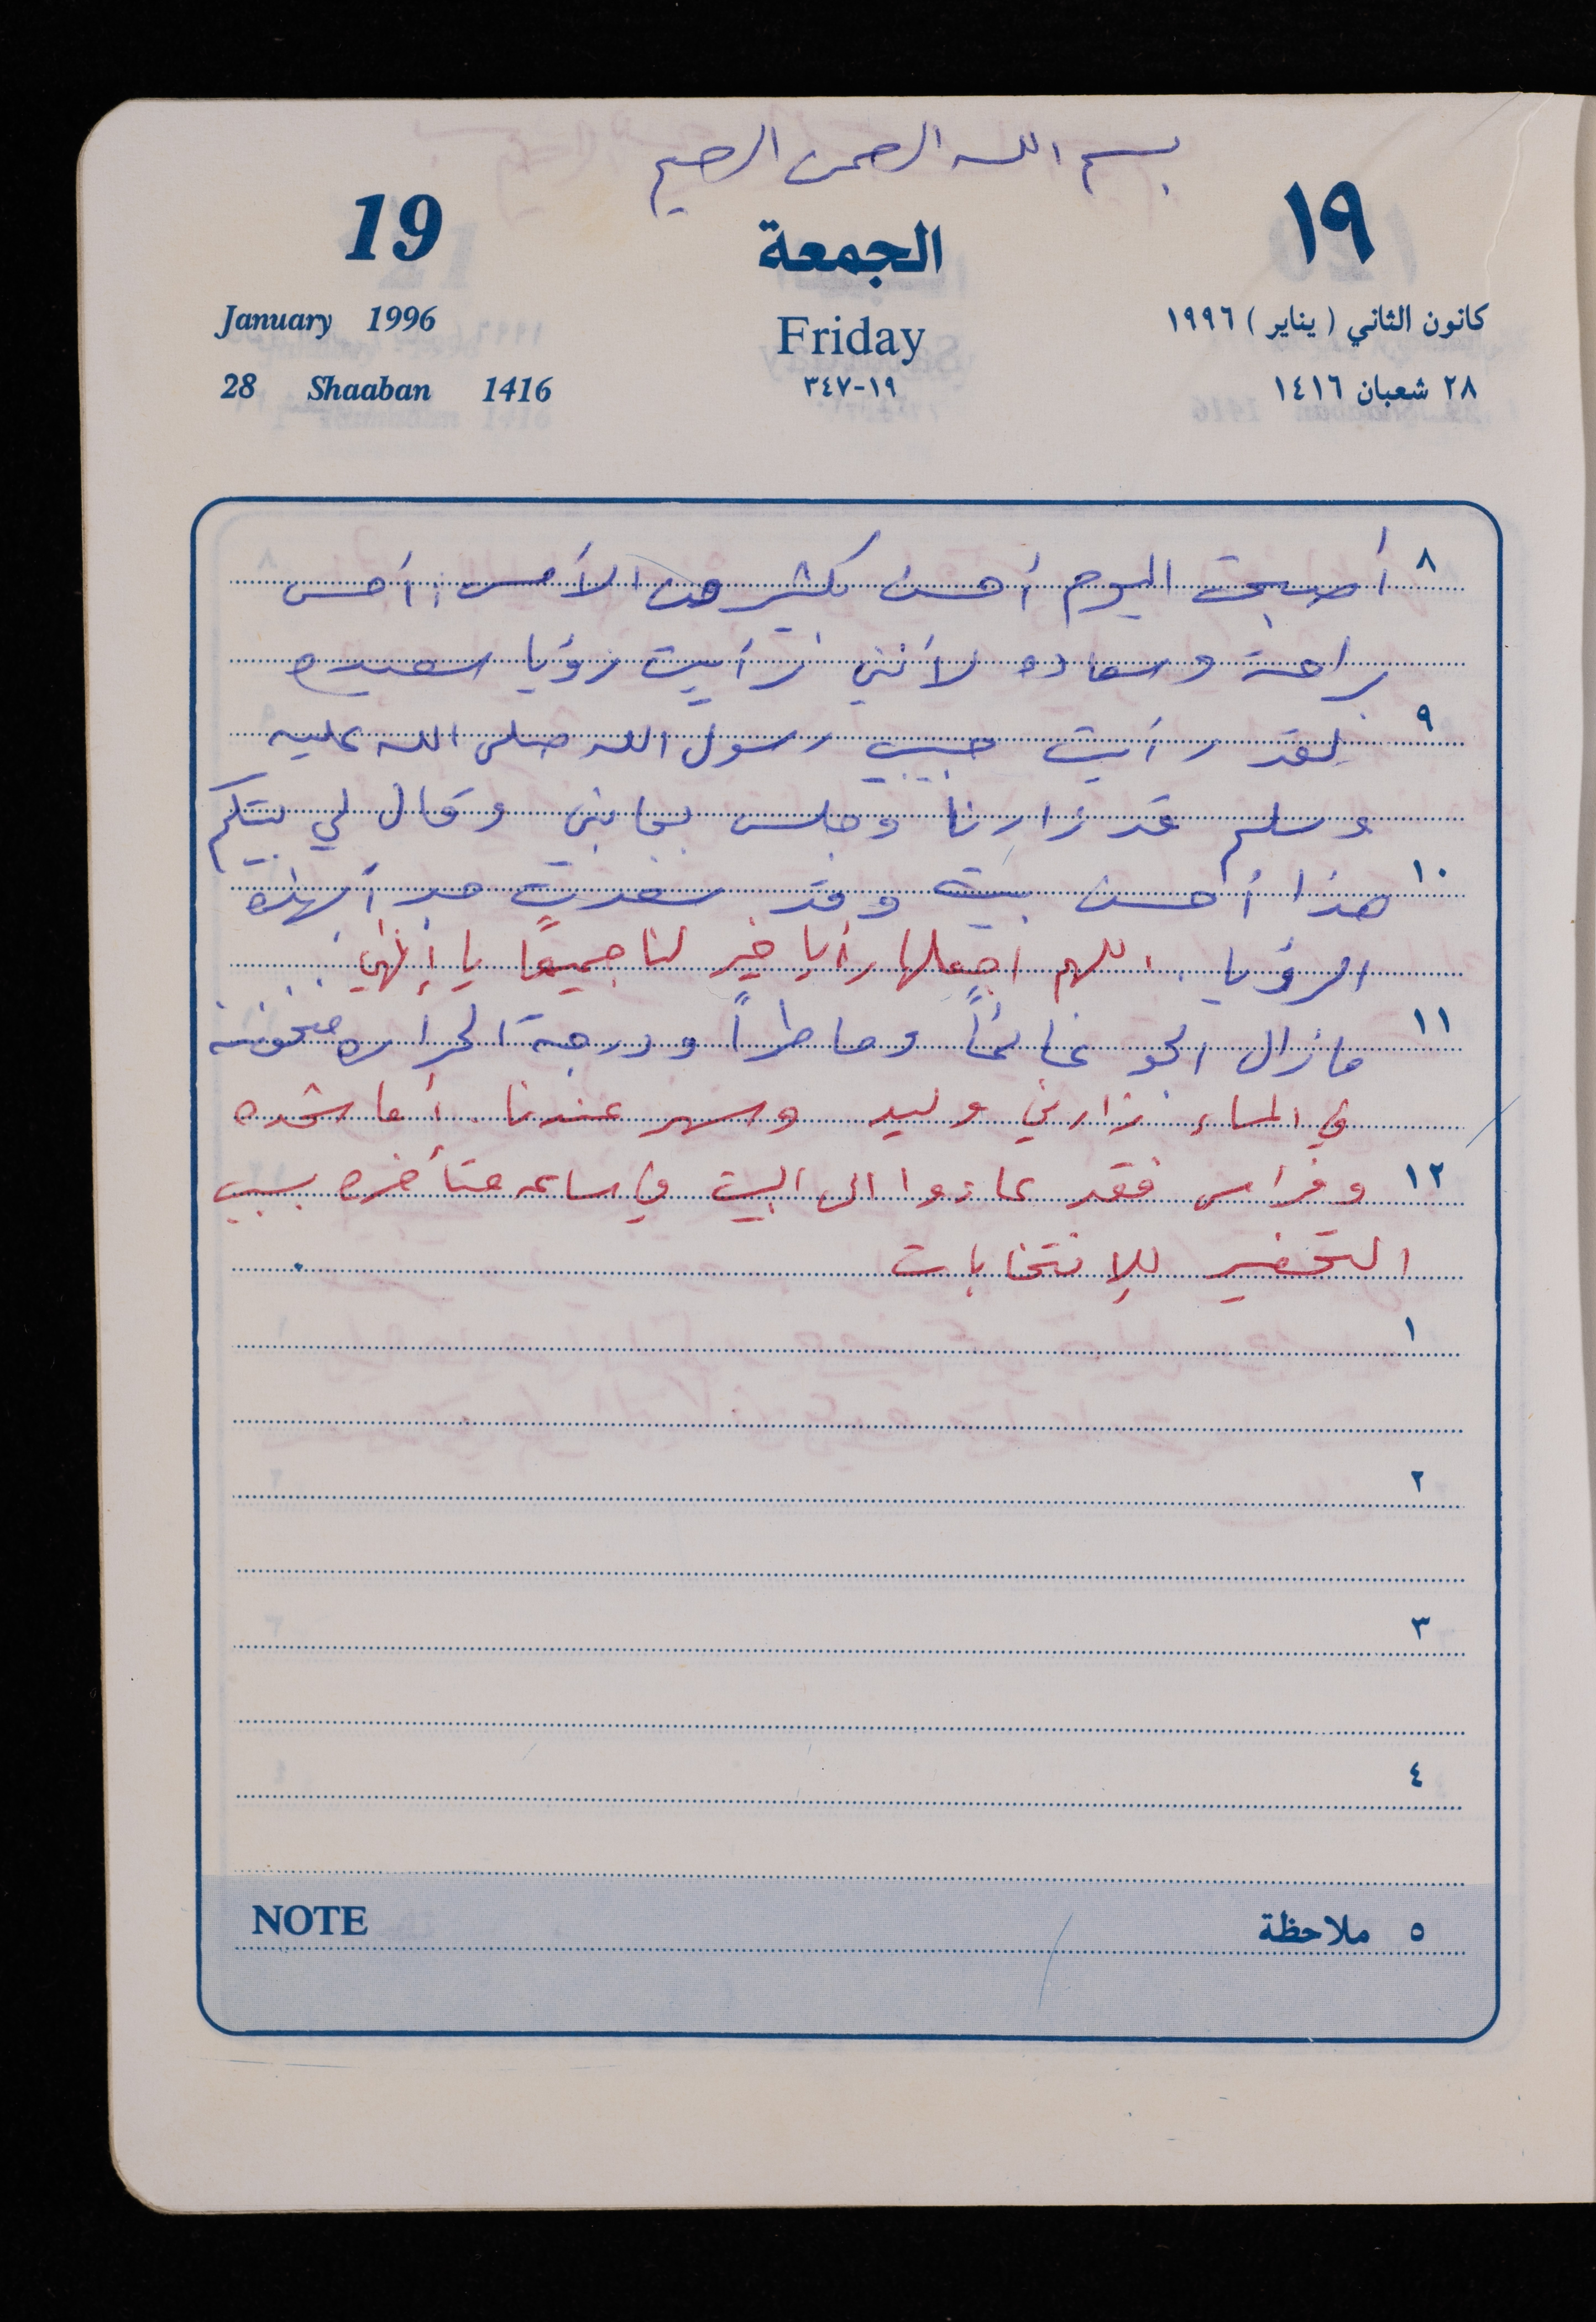 بسم الله الرحمن الرحيم
19
الجمعة
١٩
January 1996
Friday
كانون الثاني ( يناير ) ١٩٩٦
28 Shaaban 1416
١٩-٣٤٧
٢٨ شعبان ١٤١٦
٨ أصبحت اليوم أحسن بكثير من الأمس، أحس
براحة وسعاده لأنني رأيت رؤيا سعيده
٩ لقد رأيت حبيبي رسول الله صلى الله عليه
وسلم قد زارنا وجلس بجانبي وقال لي بيتكم
١٠ هذا أحسن بيت وقد سعدت جداً بهذه
الرؤيا. اللهم اجعلها رأيا خير لنا جميعًا يا إلهي
١١ مازال الجو غائماً وماطراً ودرجة الحراره منخفضة
في المساء زارني وليد وسهر عندنا. أما شحده
١٢ وفراس فقد عادوا الى البيت في ساعه متأخره بسبب
التحضير للإنتخابات
١
٢
٣
٤
NOTE
٥ ملاحظة